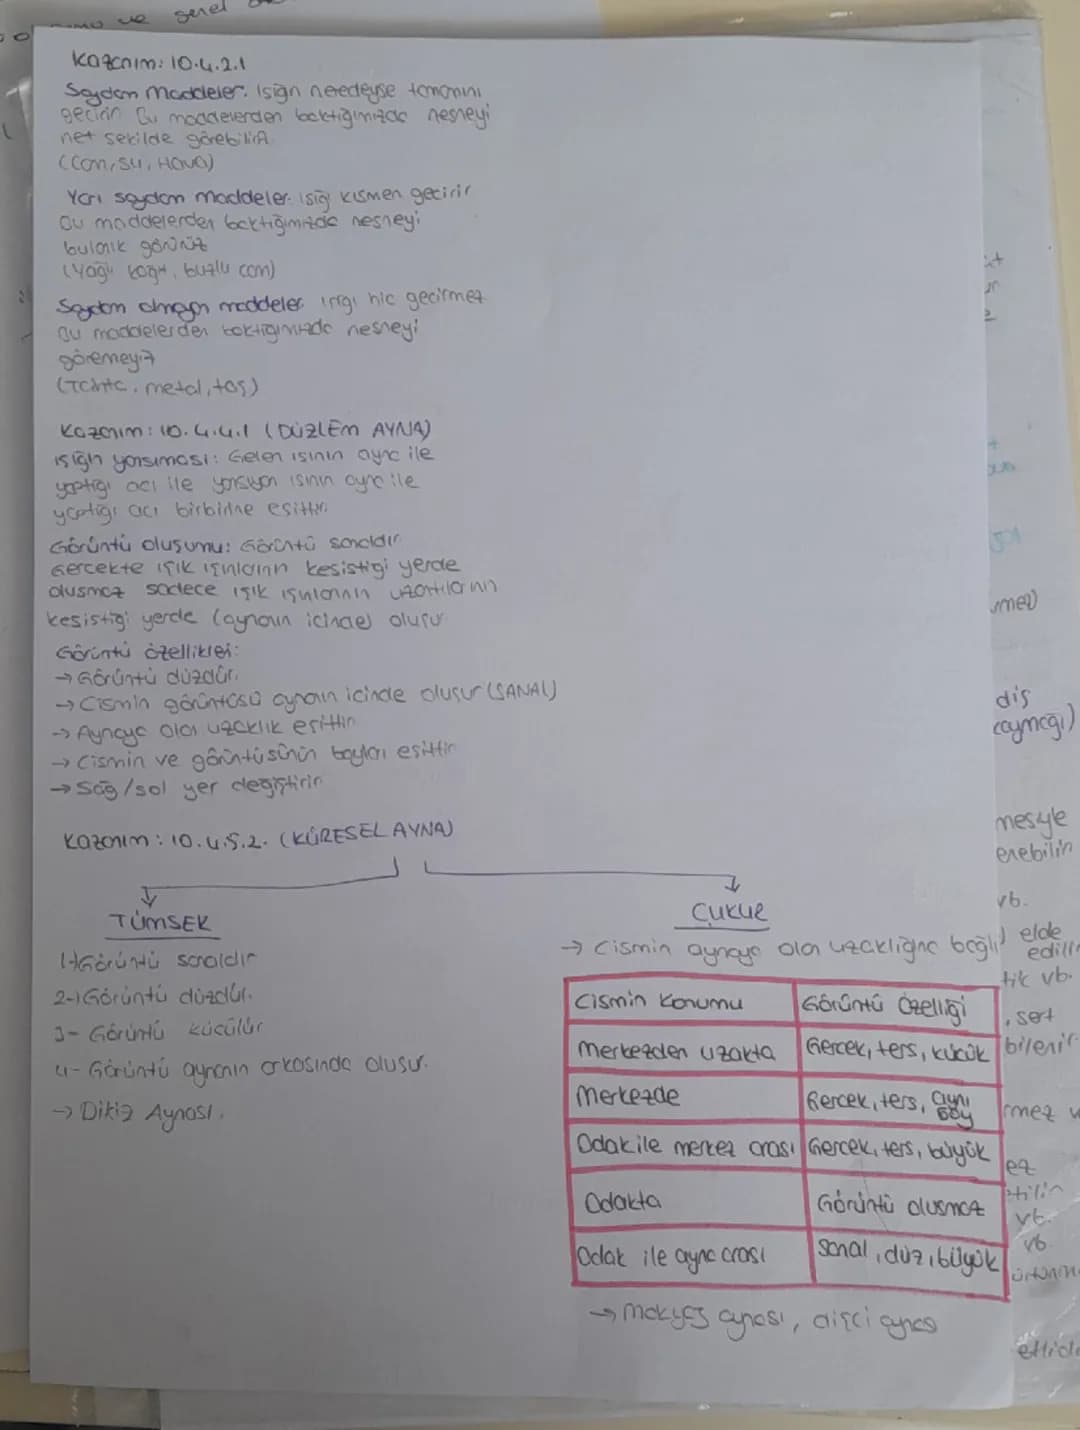 Kazanım: 10.4.2.1
Saydam Maddeler: Işığın neredeyse tamamını
geçirir. Bu maddelerden baktığımızda nesneyi
net şekilde görebiliriz.
(Cam, su, Hava)
Yarı saydam maddeler: ışığı kısmen geçirir
Bu maddelerden baktığımızda nesneyi
bulanık görürüz
(Yağlı kağıt, buzlu cam)
Saydam olmayan maddeler ışığı hiç geçirmez
Bu maddelerden baktığımızda nesneyi
göremeyiz
(Tahta, metal, taş)
Kazanım: 10.4.4.1 (DÜZLEM AYNA)
ışığın yansıması: Gelen ışının ayna ile
yaptığı açı ile yansıyan ışının ayna ile
yaptığı açı birbirine eşittir.
Görüntü oluşumu: Görüntü sanaldır.
Gerçekte ışık ışınlarının kesiştiği yerde
oluşmaz sadece ışık ışınlarının uzantılarının
kesiştiği yerde (aynanın içinde) oluşur
Görüntü özellikleri:
→ Görüntü düzdür.
→ Cismin görüntüsü aynanın içinde oluşur (SANAL)
→ Aynaya olan uzaklık eşittir.
→ Cismin ve görüntüsünün boyları eşittir
→ Sağ/sol yer değiştirir.
Kazanım: 10.4.5.2. (KÜRESEL AYNA)
TÜMSEK
1-) Görüntü sanaldır
2-) Görüntü düzdür.
3- Görüntü küçülür
4- Görüntü aynanın arkasında oluşur.
→ Dikiz Aynası.
Çukur
→ Cismin aynaya olan uzaklığına bağlı
Cismin Konumu Görüntü Özelliği
Merkezden uzakta Gerçek, ters, küçük
Merkezde Gerçek, ters, aynı boy
Odak ile merkez arası Gerçek, ters, büyük
Odakta Görüntü oluşmaz
Odak ile ayna arası sanal, düz, büyük
→ makyaj aynası, dişçi aynası
ve genel
dış
elde
vb.
tik vb.
, sert
bilenir
vb.
vb.